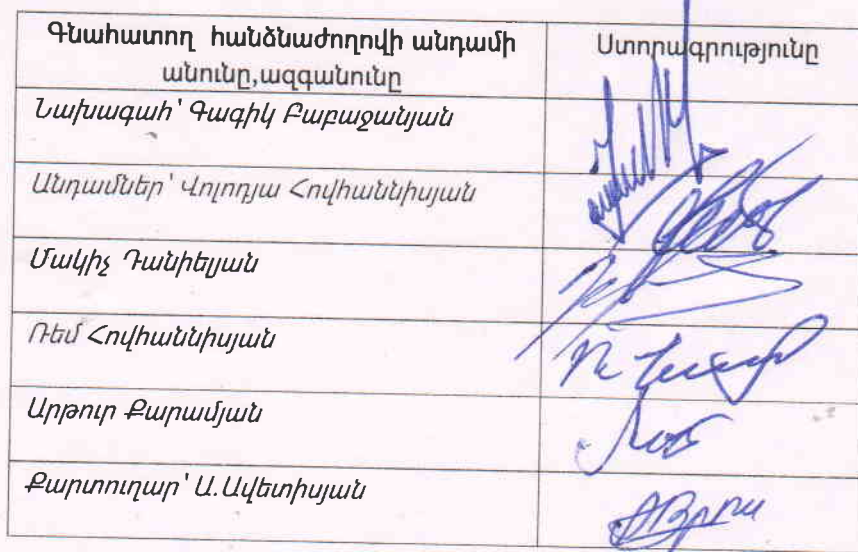 Գնահատող հանձնաժողովի անդամի
անունը,ազգանունը
Ստորագրությունը
Նախագահ՝ Գագիկ Բաբաջանյան
Անդամներ՝ Վոլոդյա Հովհաննիսյան
Մակիչ Դանիելյան
Ռեմ Հովհաննիսյան
Արթուր Քարամյան
Քարտուղար՝ Ա.Ավետիսյան